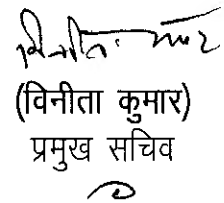 विनीता कुमार
(विनीता कुमार)
प्रमुख सचिव